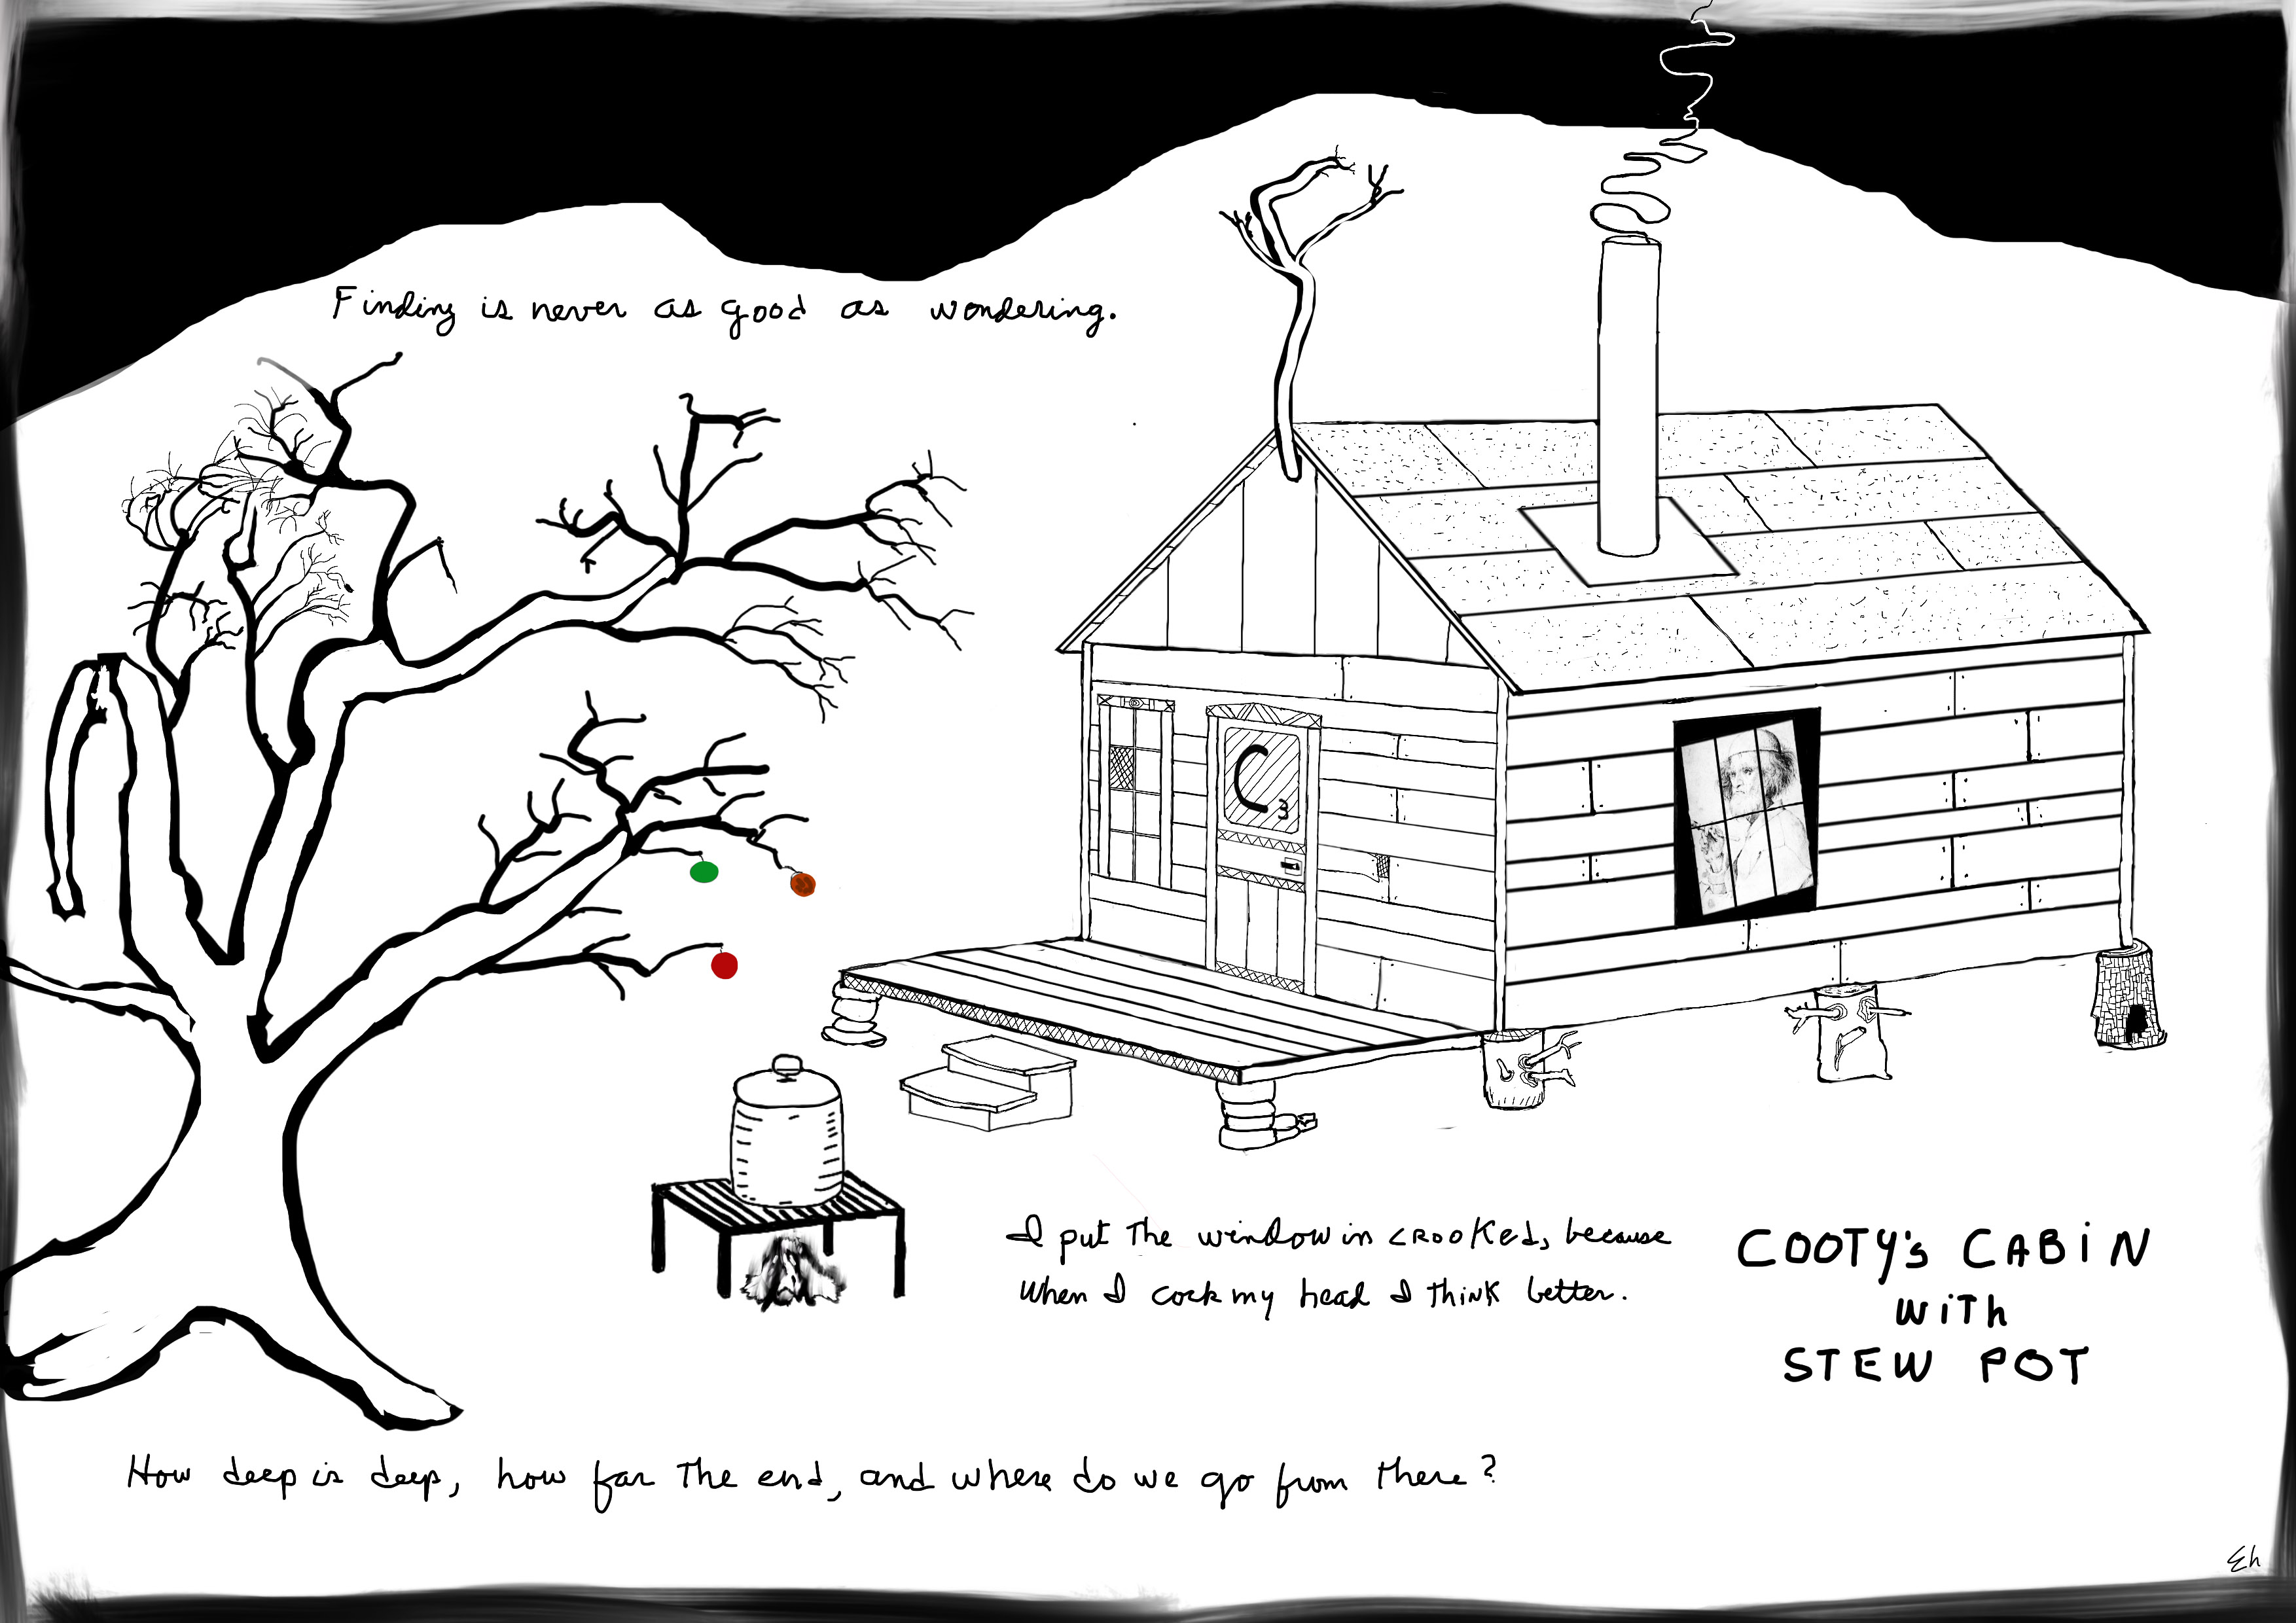 Finding is never as good as wondering.
C
3
I put The window in CROOKed, because
When I cock my head I THiNK better.
COOTY's CABiN
WiTh
STEW POT
How deep is deep, how far The end, and where do we go from there?
Eh